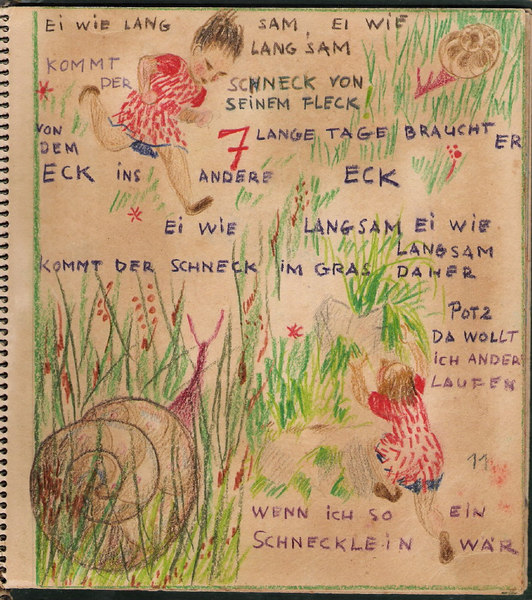 EI WIE LANG SAM, EI WIE
LANGSAM
KOMMT
DER SCHNECK VON
SEINEM FLECK!
7 LANGE TAGE BRAUCHT ER
VON
DEM
ECK INS ANDERE ECK
EI WIE LANGSAM EI WIE
LANGSAM
KOMMT DER SCHNECK IM GRAS DAHER
POTZ
DA WOLLT
ICH ANDER
LAUFEN
WENN ICH SO EIN
SCHNECKLEIN WÄR
11